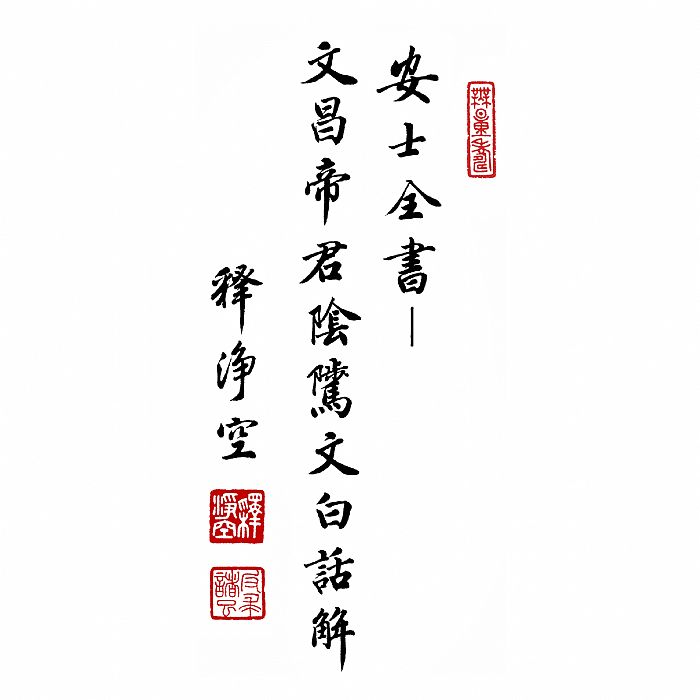 安士全書—
文昌帝君陰騭文白話解
釋淨空
釋淨空